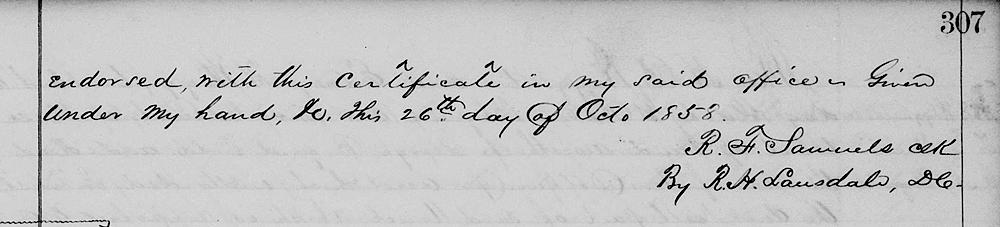 307
endorsed, with this Certificate in my said office - Given
under my hand, &c. This 26th day of Octo 1858.
R. F. Samuels Clk
By R. H. Lansdale, D.C.